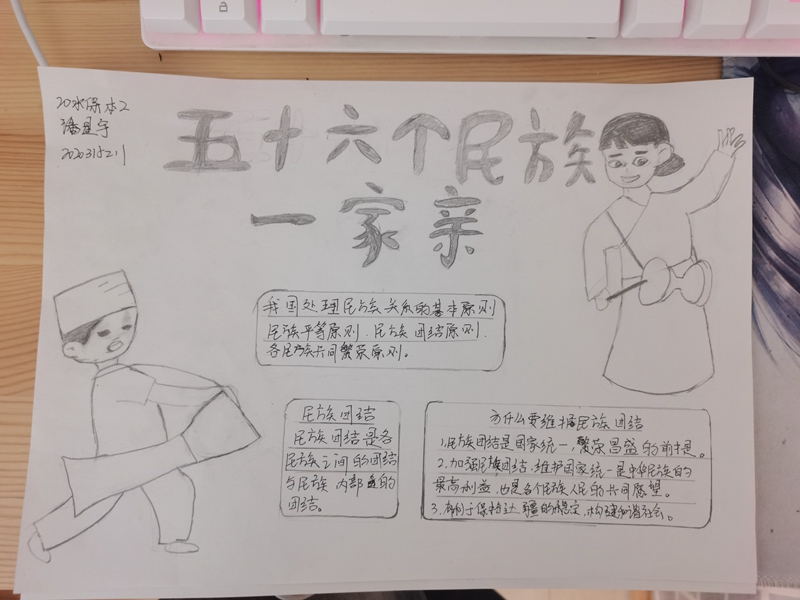 20水保本2
潘星宇
五十六个民族
一家亲
我国处理民族关系的基本原则
民族平等原则、民族团结原则、
各民族共同繁荣原则。
民族团结
民族团结是各
民族之间的团结
与民族内部的
团结。
为什么要维护民族团结
1.民族团结是国家统一,繁荣昌盛的前提。
2.加强民族团结,维护国家统一是中华民族的
最高利益,也是各个民族人民的共同愿望。
3.有利于保持边疆的稳定,构建和谐社会。